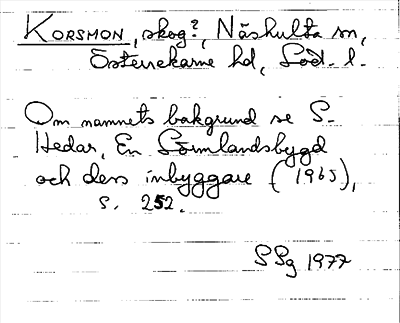 KORSMON, skog?, Näshulta sn,
Österrekarne hd, Söd. l.
Om namnets bakgrund se S.
Hedar, En Sörmlandsbygd
och dess inbyggare (1965),
s. 252.
SSg 1977